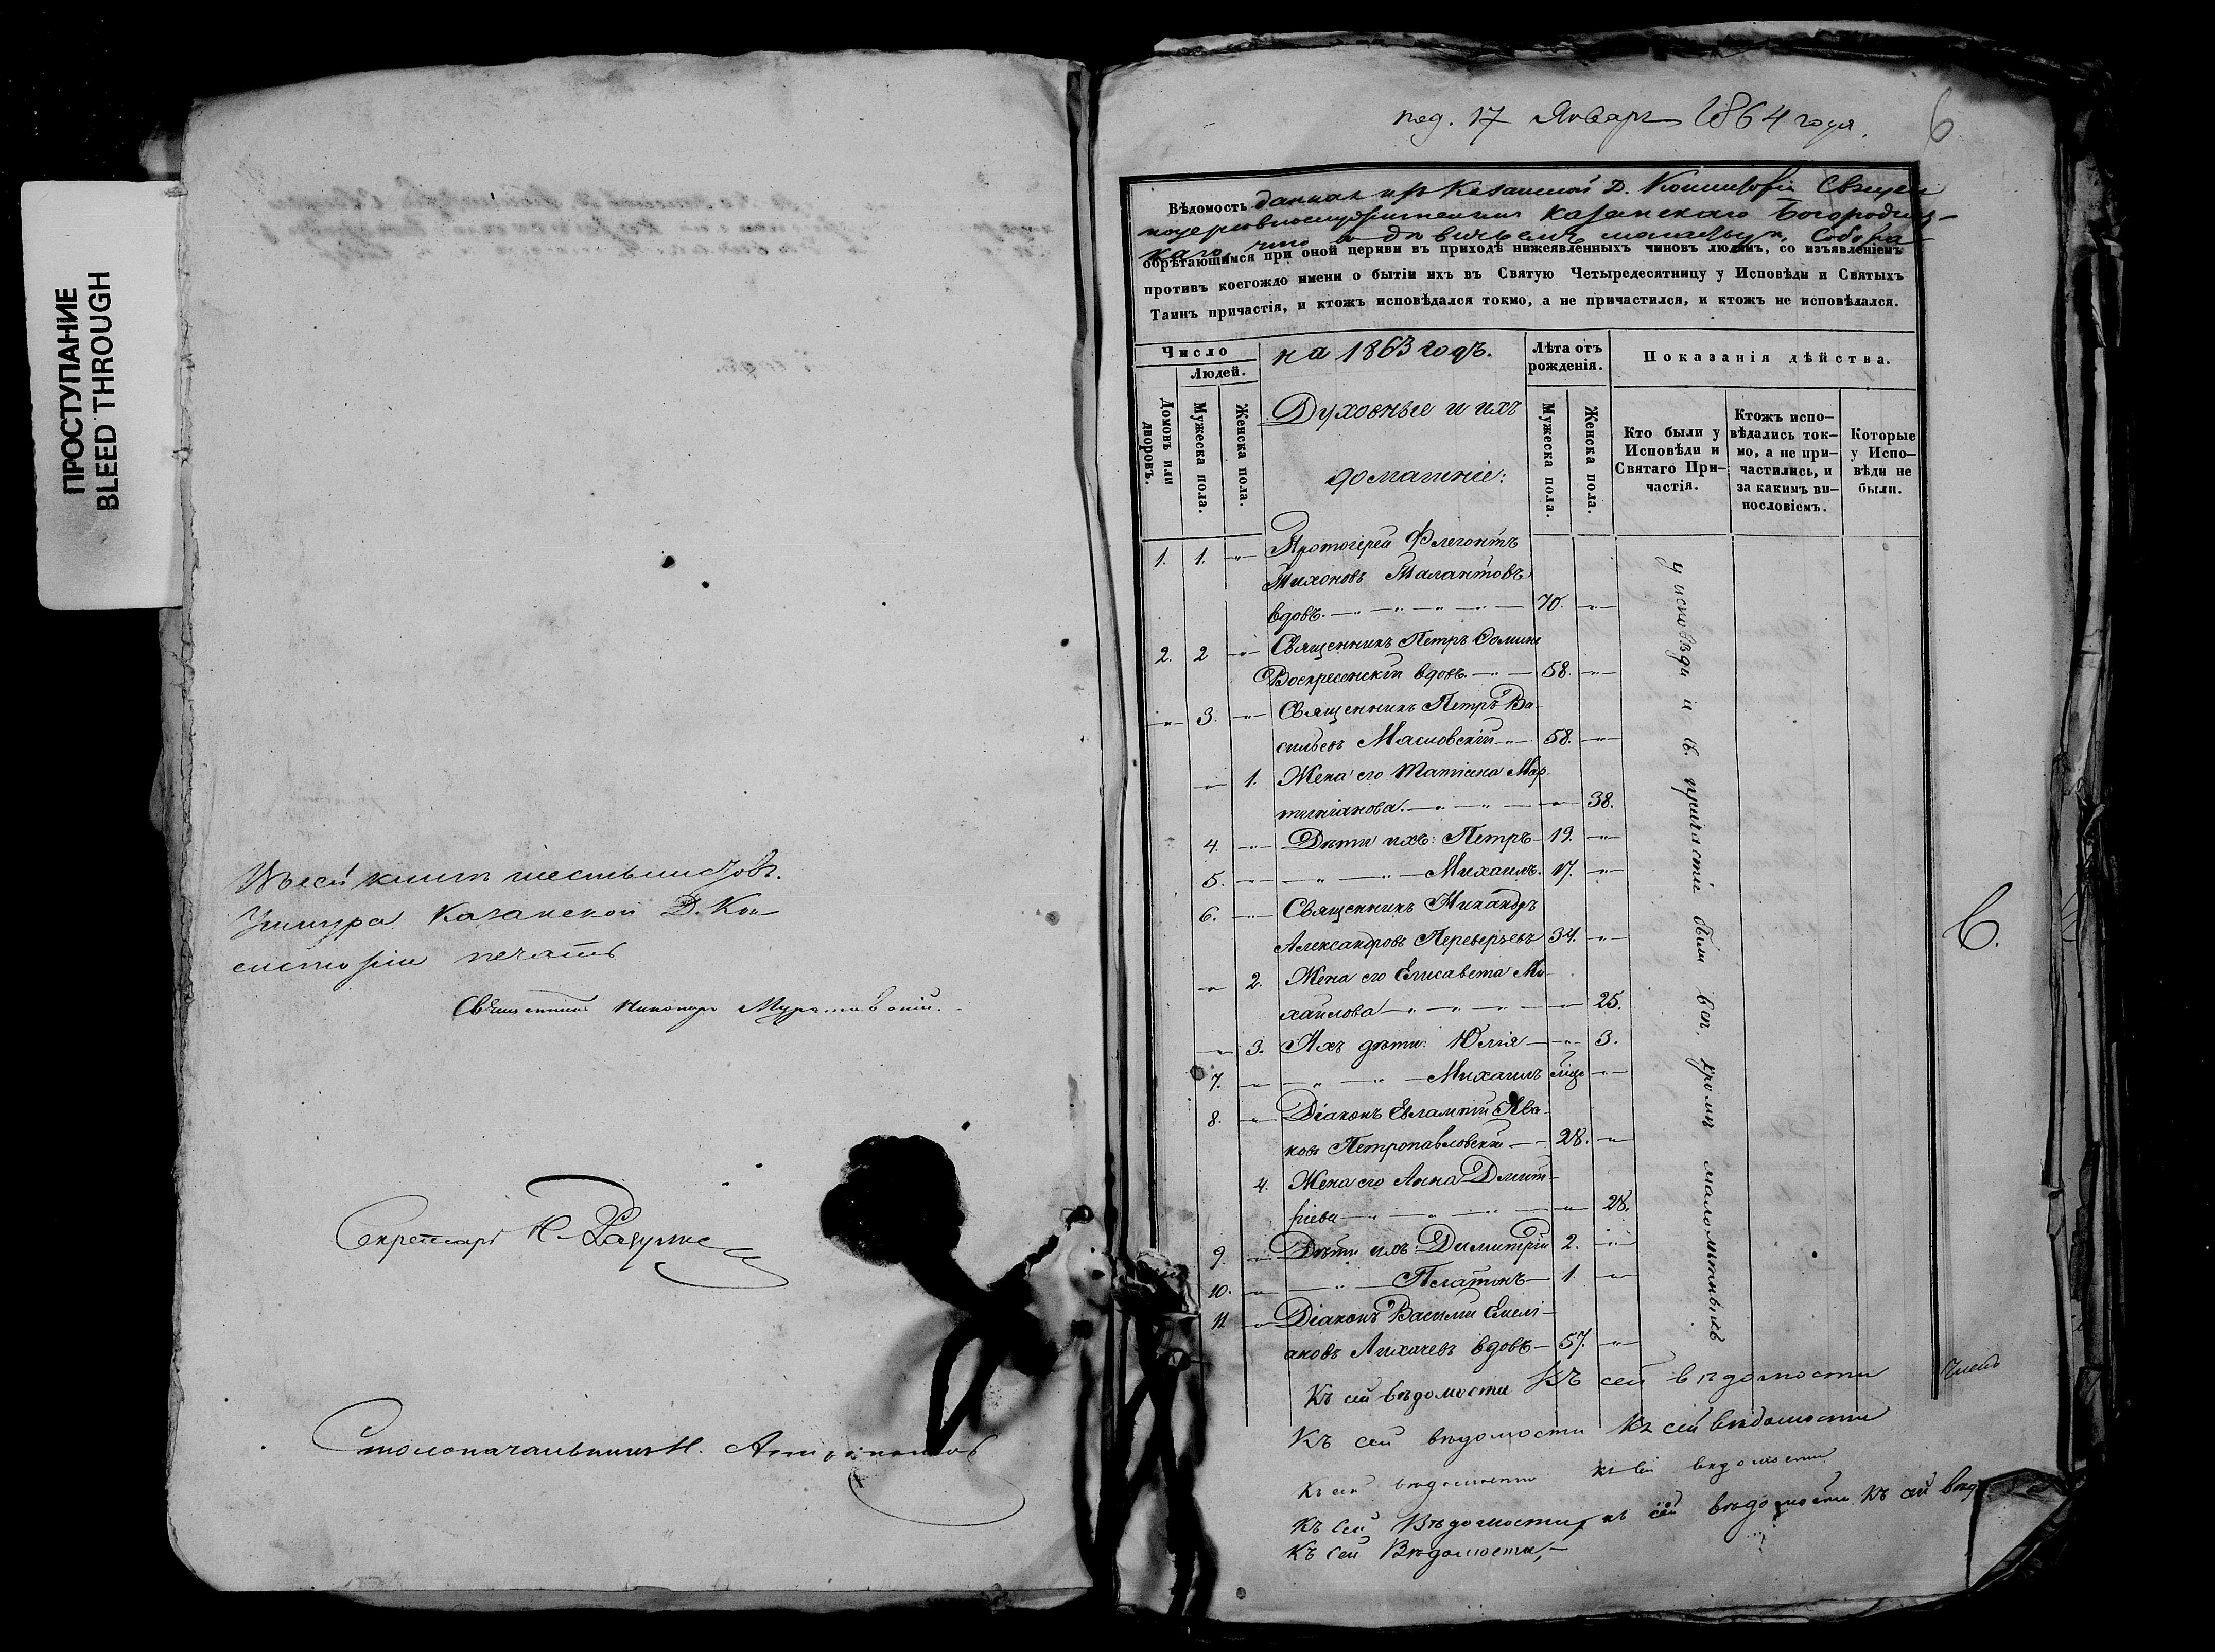 ПРОСТУПАНИЕ
BLEED THROUGH
шесть
Казанской Д. Кон
систоріи печать
Священникъ
Секретарь Н.
Столоначальникъ Н.
под. 17 Январь 1864 года.
6
Вѣдомость данная изъ Казанской Д. Консисторіи
Казанскаго Богородиц-
каго Собора
обрѣтающимся при оной церкви въ приходѣ нижеявленныхъ чиновъ людямъ, со изъявленіемъ
противъ коегождо имени о бытіи ихъ въ Святую Четыредесятницу у Исповѣди и Святыхъ
Таинъ причастія, и ктожъ исповѣдался токмо, а не причастился, и ктожъ не исповѣдался.
Число
Людей.
Домовъ или дворовъ.
Мужеска пола.
Женска пола.
на 1863 годъ.
Духовные и ихъ
домашніе:
Лѣта отъ рожденія.
Мужеска пола.
Женска пола.
Показанія дѣйства.
Кто были у Исповѣди и Святаго При-частія.
Ктожъ испо-вѣдались ток-мо, а не при-частились, и за какимъ ви-нословіемъ.
Которые у Испо-вѣди не были.
1. 1. -"- Протоіерей Флегонтъ
Тихоновъ Талантовъ
вдовъ. 70. -"-
2. 2 -"- Священникъ Петръ Ѳоминъ
Воскресенскій вдовъ. 58. -"-
-"- 3. -"- Священникъ Петръ Ва-
сильевъ Масловскій 58. -"-
-"- 1. Жена его Татіана Мар-
38.
4. -"- Дѣти ихъ: Петръ 19. -"-
5. -"- Михаилъ. 17. -"-
6. -"- Священникъ Никандръ
Александровъ Переверзевъ 34. -"-
-"- 2. Жена его Елисавета Ми-
хаилова 25.
-"- 3. Ихъ дѣти: Юлія -"- 3.
7. -"- Михаилъ -"-
8. -"- Діаконъ Евлампій Яко-
вовъ Петропавловскій 28. -"-
4. Жена его Анна Димит-
ріева -"- 28.
9. -"- Дѣти ихъ: Димитрій 2. -"-
10. -"- Платонъ 1. -"-
11 -"- Діаконъ Василій Емелі-
ановъ Лихачевъ вдовъ 57. -"-
у исповѣди и св. причастіе были всѣ, кромѣ малолѣтныхъ
С.
Къ сей вѣдомости Къ сей вѣдомости
Къ сей вѣдомости Къ сей вѣдомости
Къ сей вѣдомости къ сей вѣдомости
Къ сей Вѣдомости, къ сей вѣдомости Къ сей вѣд
Къ сей Вѣдомости,